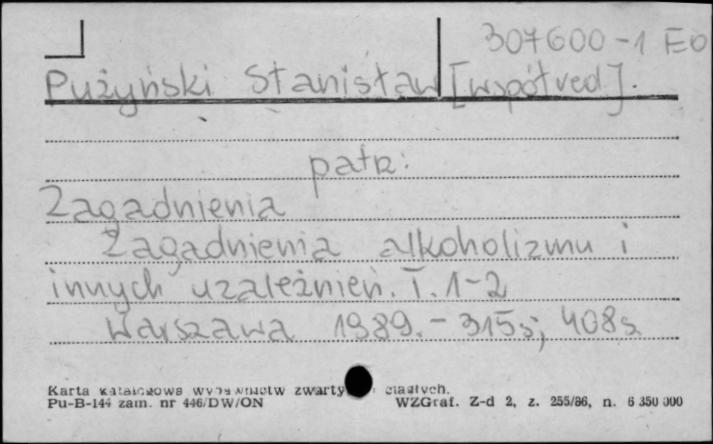 307600-1 EO
Pużyński Stanisław [współred].
patrz:
Zagadnienia
Zagadnienia alkoholizmu i
innych uzależnień. T. 1-2
Warszawa 1989. - 315s; 408s.
Karta katalogowa wydawnictw zwartych ciągłych.
Pu-B-144 zam. nr 446/DW/ON WZGraf. Z-d 2, z. 255/86, n. 6 350 000